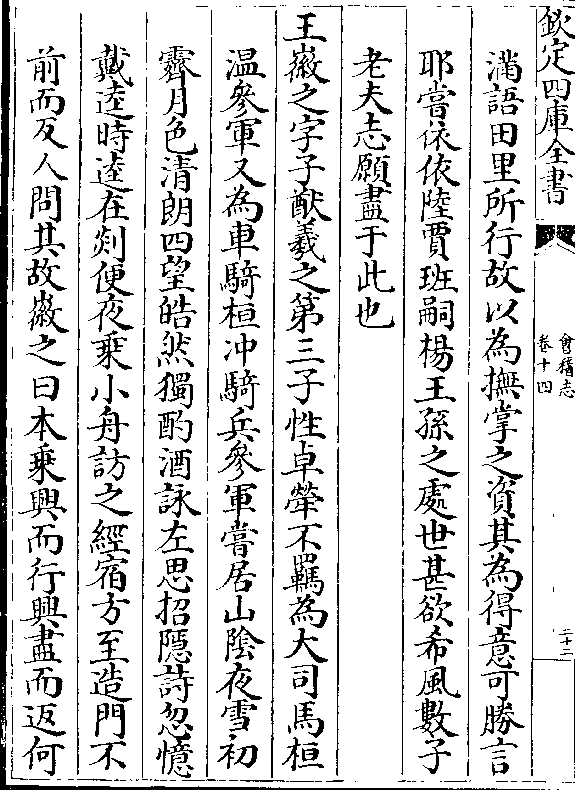 欽定四庫全書
會稽志
卷十四
二十二
滿語田里所行故以為撫掌之資其為得意可勝言
耶嘗依依陸賈班嗣楊王孫之處世甚欲希風數子
老夫志願盡于此也
王徽之字子猷羲之第三子性卓犖不羈為大司馬桓
温參軍又為車騎桓冲騎兵參軍嘗居山陰夜雪初
霽月色清朗四望皓然獨酌酒詠左思招隱詩忽憶
戴逵時逵在剡便夜乘小舟訪之經宿方至造門不
前而反人問其故徽之曰本乘興而行興盡而返何